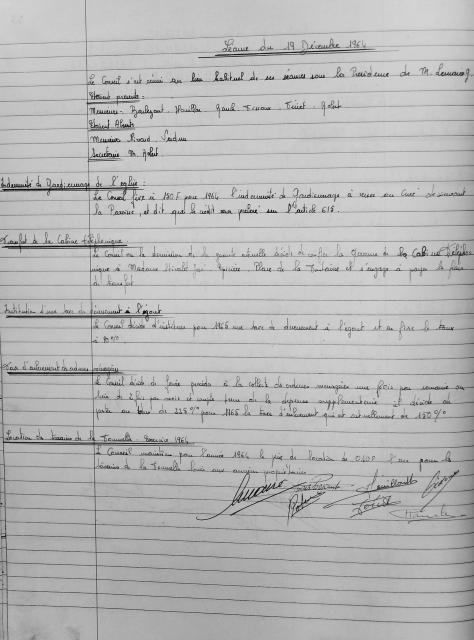 Séance du 19 Décembre 1964
Le Conseil s'est réuni au lieu habituel de ses séances sous la Présidence de M.
Etaient présents :
Messieurs
Etaient Absents
Messieurs Rivard
Secrétaire M.
Indemnité de Gardiennage de l'église :
Le Conseil fixe à 150 F pour 1964 l'indemnité de Gardiennage à verser au Curé desservant
la Paroisse, et dit que le crédit sera prélevé sur l'article 615.
Transfert de la Cabine téléphonique :
Le Conseil de la gérante actuelle décide de confier la Gérance de la Cabine Télépho-
nique à Madame Epicière, Place de la Fontaine et s'engage à payer les frais
de transfert
Institution d'une taxe de déversement à l'égout
Le Conseil décide d'instituer pour 1965 une taxe de déversement à l'égout et en fixe le taux
à %
Taxe d'enlèvement des ordures ménagères
Le Conseil décide de faire procéder à la collecte des ordures ménagères une fois par semaine au
lieu de 2 fois par mois et compte tenu de la dépense supplémentaire il décide de
porter au taux de 225 % pour 1965 la taxe d'enlèvement qui est actuellement de 150 %
Location de terrains de la Exercice 1964
Le Conseil maintient pour l'année 1964 le prix de location de pour les
terrains de la loués aux anciens propriétaires